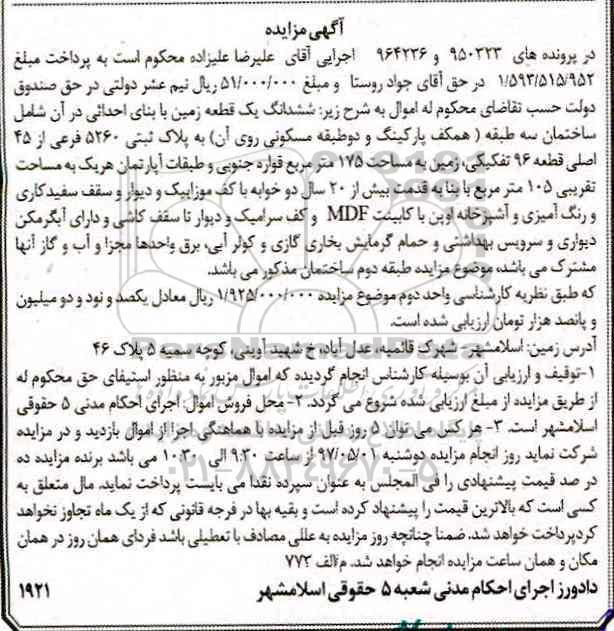 آگهی مزایده
در پرونده های ۹۵۰۳۲۳ و ۹۶۴۲۳۶ اجرایی آقای علیرضا علیزاده محکوم است به پرداخت مبلغ
۱/۵۹۳/۵۱۵/۹۵۲ در حق آقای جواد روستا و مبلغ ۵۱/۰۰۰/۰۰۰ ریال نیم عشر دولتی در حق صندوق
دولت حسب تقاضای محکوم له اموال به شرح زیر: ششدانگ یک قطعه زمین با بنای احداثی در آن شامل
ساختمان سه طبقه ( همکف پارکینگ و دوطبقه مسکونی روی آن) به پلاک ثبتی ۵۲۶۰ فرعی از ۴۵
اصلی قطعه ۹۶ تفکیکی، زمین به مساحت ۱۷۵ متر مربع قواره جنوبی و طبقات آپارتمان هریک به مساحت
تقریبی ۱۰۵ متر مربع با بنا به قدمت بیش از ۲۰ سال دو خوابه با کف موزاییک و دیوار و سقف سفیدکاری
و رنگ آمیزی و آشپزخانه اوپن با کابینت MDF و کف سرامیک و دیوار تا سقف کاشی و دارای آبگرمکن
دیواری و سرویس بهداشتی و حمام گرمایش بخاری گازی و کولر آبی، برق واحدها مجزا و آب و گاز آنها
مشترک می باشد، موضوع مزایده طبقه دوم ساختمان مذکور می باشد.
که طبق نظریه کارشناسی واحد دوم موضوع مزایده ۱/۹۲۵/۰۰۰/۰۰۰ ریال معادل یکصد و نود و دو میلیون
و پانصد هزار تومان ارزیابی شده است.
آدرس زمین: اسلامشهر- شهرک قائمیه، عدل آباد، خ شهید آوینی، کوچه سمیه ۵ پلاک ۴۶
۱-توقیف و ارزیابی آن بوسیله کارشناس انجام گردیده که اموال مزبور به منظور استیفای حق محکوم له
از طریق مزایده از مبلغ ارزیابی شده شروع می گردد. ۲- محل فروش اموال: اجرای احکام مدنی ۵ حقوقی
اسلامشهر است. ۳- هر کس می توان ۵ روز قبل از مزایده با هماهنگی اجرا از اموال بازدید و در مزایده
شرکت نماید روز انجام مزایده دوشنبه ۹۷/۰۵/۰۱ از ساعت ۹:۳۰ الی ۱۰:۳۰ می باشد برنده مزایده ده
در صد قیمت پیشنهادی را فی المجلس به عنوان سپرده نقدا می بایست پرداخت نماید. مال متعلق به
کسی است که بالاترین قیمت را پیشنهاد کرده است و بقیه بها در فرجه قانونی که از یک ماه تجاوز نخواهد
کردپرداخت خواهد شد. ضمنا چنانچه روز مزایده به عللی مصادف با تعطیلی باشد فردای همان روز در همان
مکان و همان ساعت مزایده انجام خواهد شد. م/الف ۷۷۳
دادورز اجرای احکام مدنی شعبه ۵ حقوقی اسلامشهر ۱۹۲۱
۰۲۱-۸۸۳۴۹۶۷۰-۵